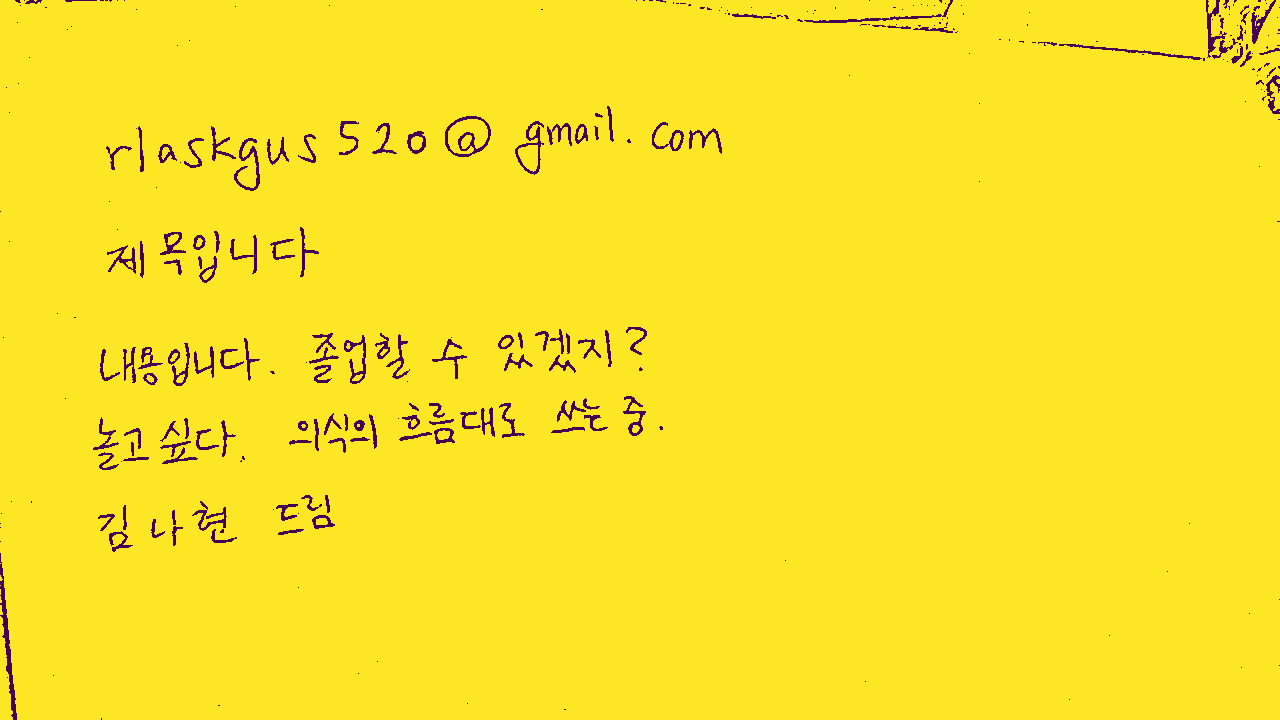 rlaskgus520@gmail.com
제목입니다
내용입니다. 졸업할 수 있겠지?
놀고 싶다. 의식의 흐름대로 쓰는 중.
김나현 드림